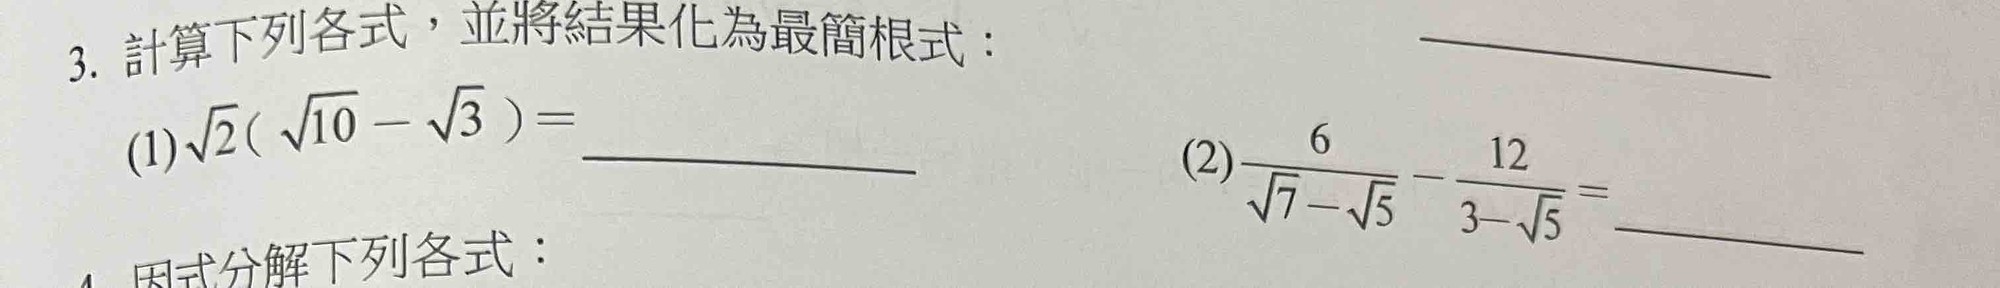 3. 計算下列各式，並將結果化為最簡根式：
(1) √2( √10 − √3 ) = ______
(2) 6/(√7−√5) − 12/(3−√5) = ______
因式分解下列各式：